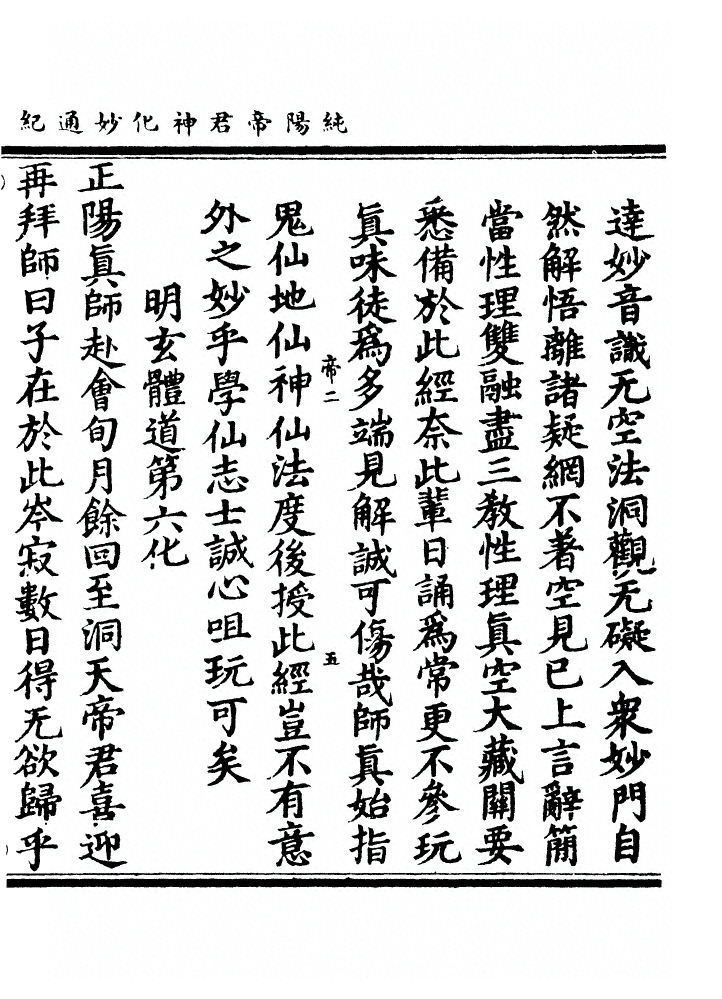 純陽帝君神化妙通紀
達妙音識无空法洞觀无礙入衆妙門自
然解悟離諸疑網不著空見已上言辭簡
當性理雙融盡三教性理眞空大藏關要
悉備於此經奈此輩日誦爲常更不參玩
眞味徒爲多端見解誠可傷哉師眞始指
帝二
五
鬼仙地仙神仙法度後授此經豈不有意
外之妙乎學仙志士誠心咀玩可矣
明玄體道第六化
正陽眞師赴會旬月餘回至洞天帝君喜迎
再拜師曰子在於此岑寂數日得无欲歸乎